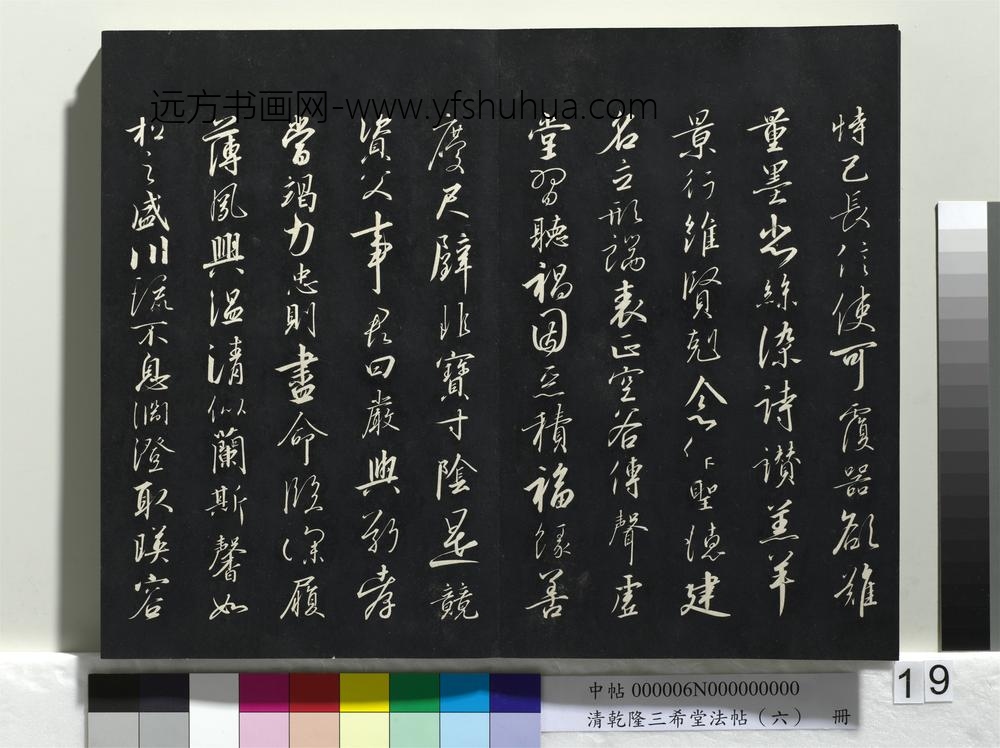 恃己長信使可覆器欲難
量墨悲絲染詩讚羔羊
景行維賢剋念作聖德建
名立形端表正空谷傳聲虛
堂習聽禍因惡積福緣善
慶尺璧非寶寸陰是競
資父事君曰嚴與敬孝
當竭力忠則盡命臨深履
薄夙興溫清似蘭斯馨如
松之盛川流不息淵澄取暎容
远方书画网-www.yfshuhua.com
中帖 000006N000000000
清乾隆三希堂法帖(六) 冊
19